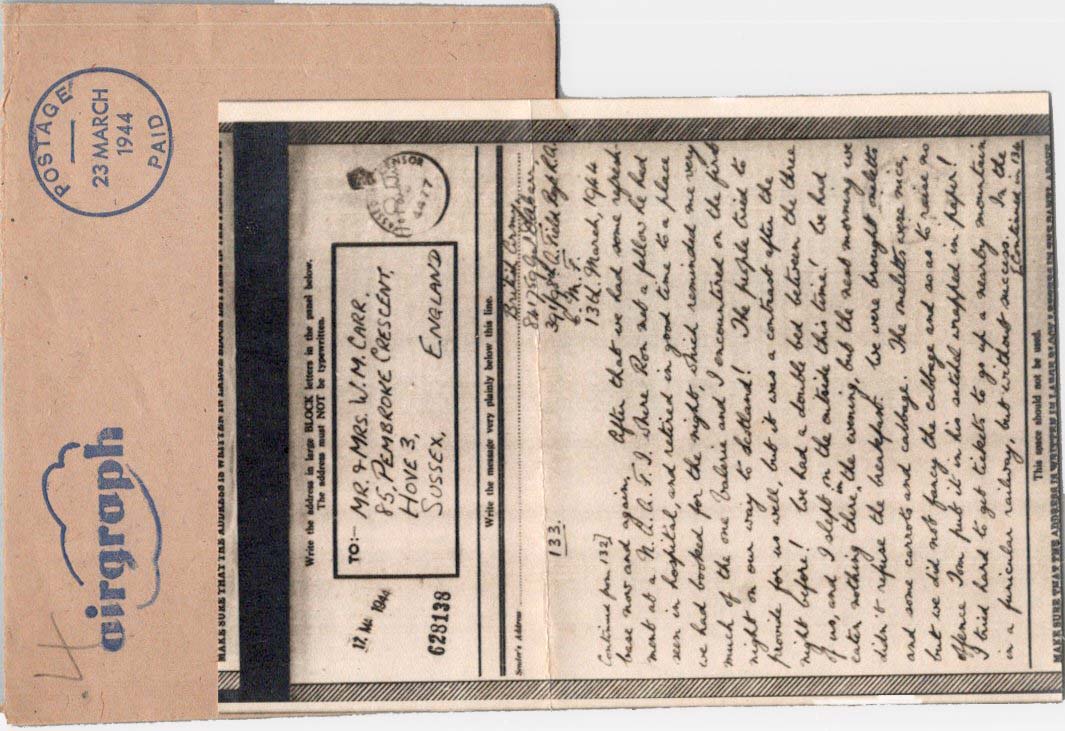 POSTAGE
23 MARCH
1944
PAID
.4
airgraph
MAKE SURE THAT THE ADDRESS IS WRITTEN IN LARGE BLOCK LETTERS IN THE PANEL BELOW
Write the address in large BLOCK letters in the panel below.
The address must NOT be typewritten.
TO:—
MR. & MRS. W. M. CARR.
85, PEMBROKE CRESCENT,
HOVE 3,
SUSSEX, ENGLAND
CENSOR
17. Mar 1944
628138
Write the message very plainly below this line.
Sender's Address
39/ Field Regt R.A.
C. M. F.
13th. March, 1944
133.
Continued from 132]
these now and again. After that we had some refresh-
ment at a N.A.A.F.I. where Ron met a fellow he had
seen in hospital, and retired in good time to a place
we had booked for the night, which reminded me very
much of the one Valerie and I encountered on the first
night on our way to Scotland! The people tried to
provide for us well, but it was a contrast after the
night before! We had a double bed between the three
of us, and I slept on the outside this time! We had
eaten nothing there in the evening, but the next morning we
didn't refuse the breakfast. We were brought omelettes
and some carrots and cabbage. The omelettes were nice,
but we did not fancy the cabbage and so as to raise no
offence Tom put it in his satchel wrapped in paper!
I tried hard to get tickets to go up a nearby mountain
in a funicular railway, but without success. In the
[Continued in 134
This space should not be used.
MAKE SURE THAT THE ADDRESS IS WRITTEN IN LARGE BLOCK LETTERS IN THE PANEL ABOVE